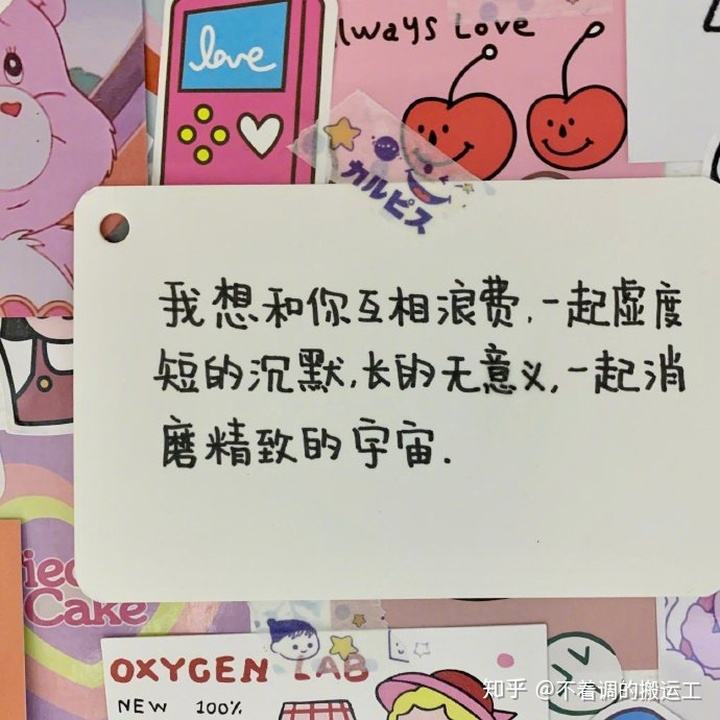 love
lways Love
カルピス
我想和你互相浪费,一起虚度
短的沉默,长的无意义,一起消
磨精致的宇宙.
Cake
OXYGEN LAB
NEW 100%
知乎 @不着调的搬运工